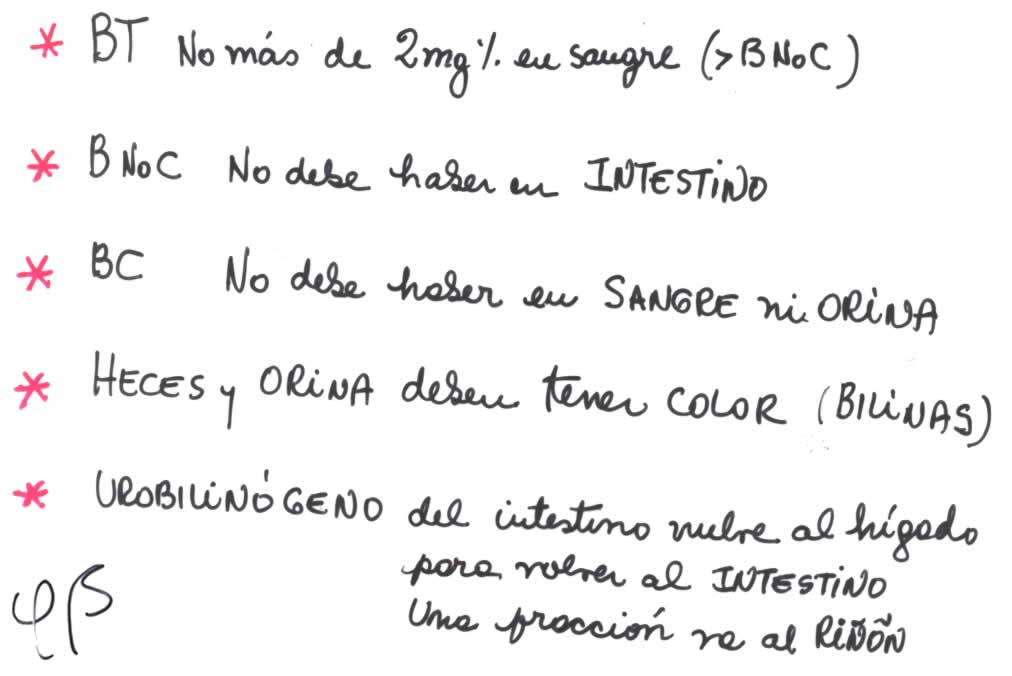 * BT No más de 2mg% en sangre (>BNoC)
* BNoC No debe haber en INTESTINO
* BC No debe haber en SANGRE ni ORINA
* HECES y ORINA deben tener COLOR (BILINAS)
* UROBILINÓGENO del intestino vuelve al hígado
para volver al INTESTINO
Una fracción va al RIÑÓN
φβ